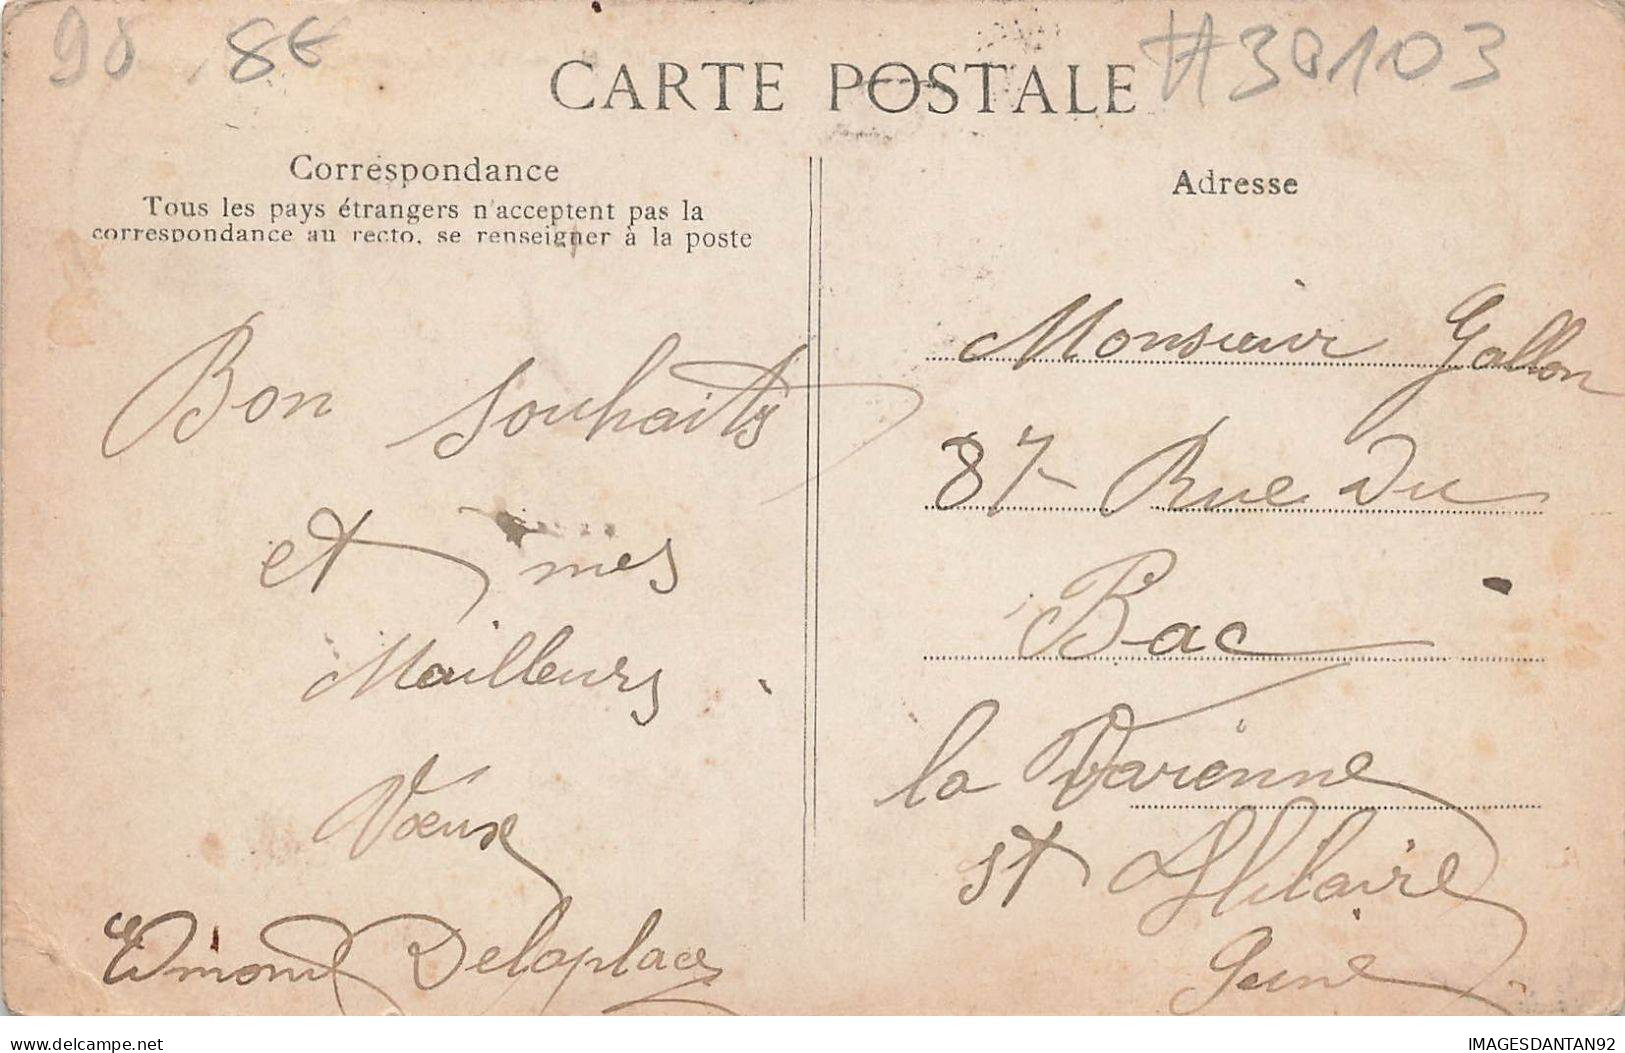 98 8€
CARTE POSTALE
#38103
Correspondance
Tous les pays étrangers n'acceptent pas la
correspondance au recto, se renseigner à la poste
Bon souhaits
et mes
Meilleurs
Vœux
Edmond Delaplace
Adresse
Monsieur Gallon
87 Rue du
Bac
la Varenne
St Hilaire
Seine
delcampe.net
IMAGESDANTAN92